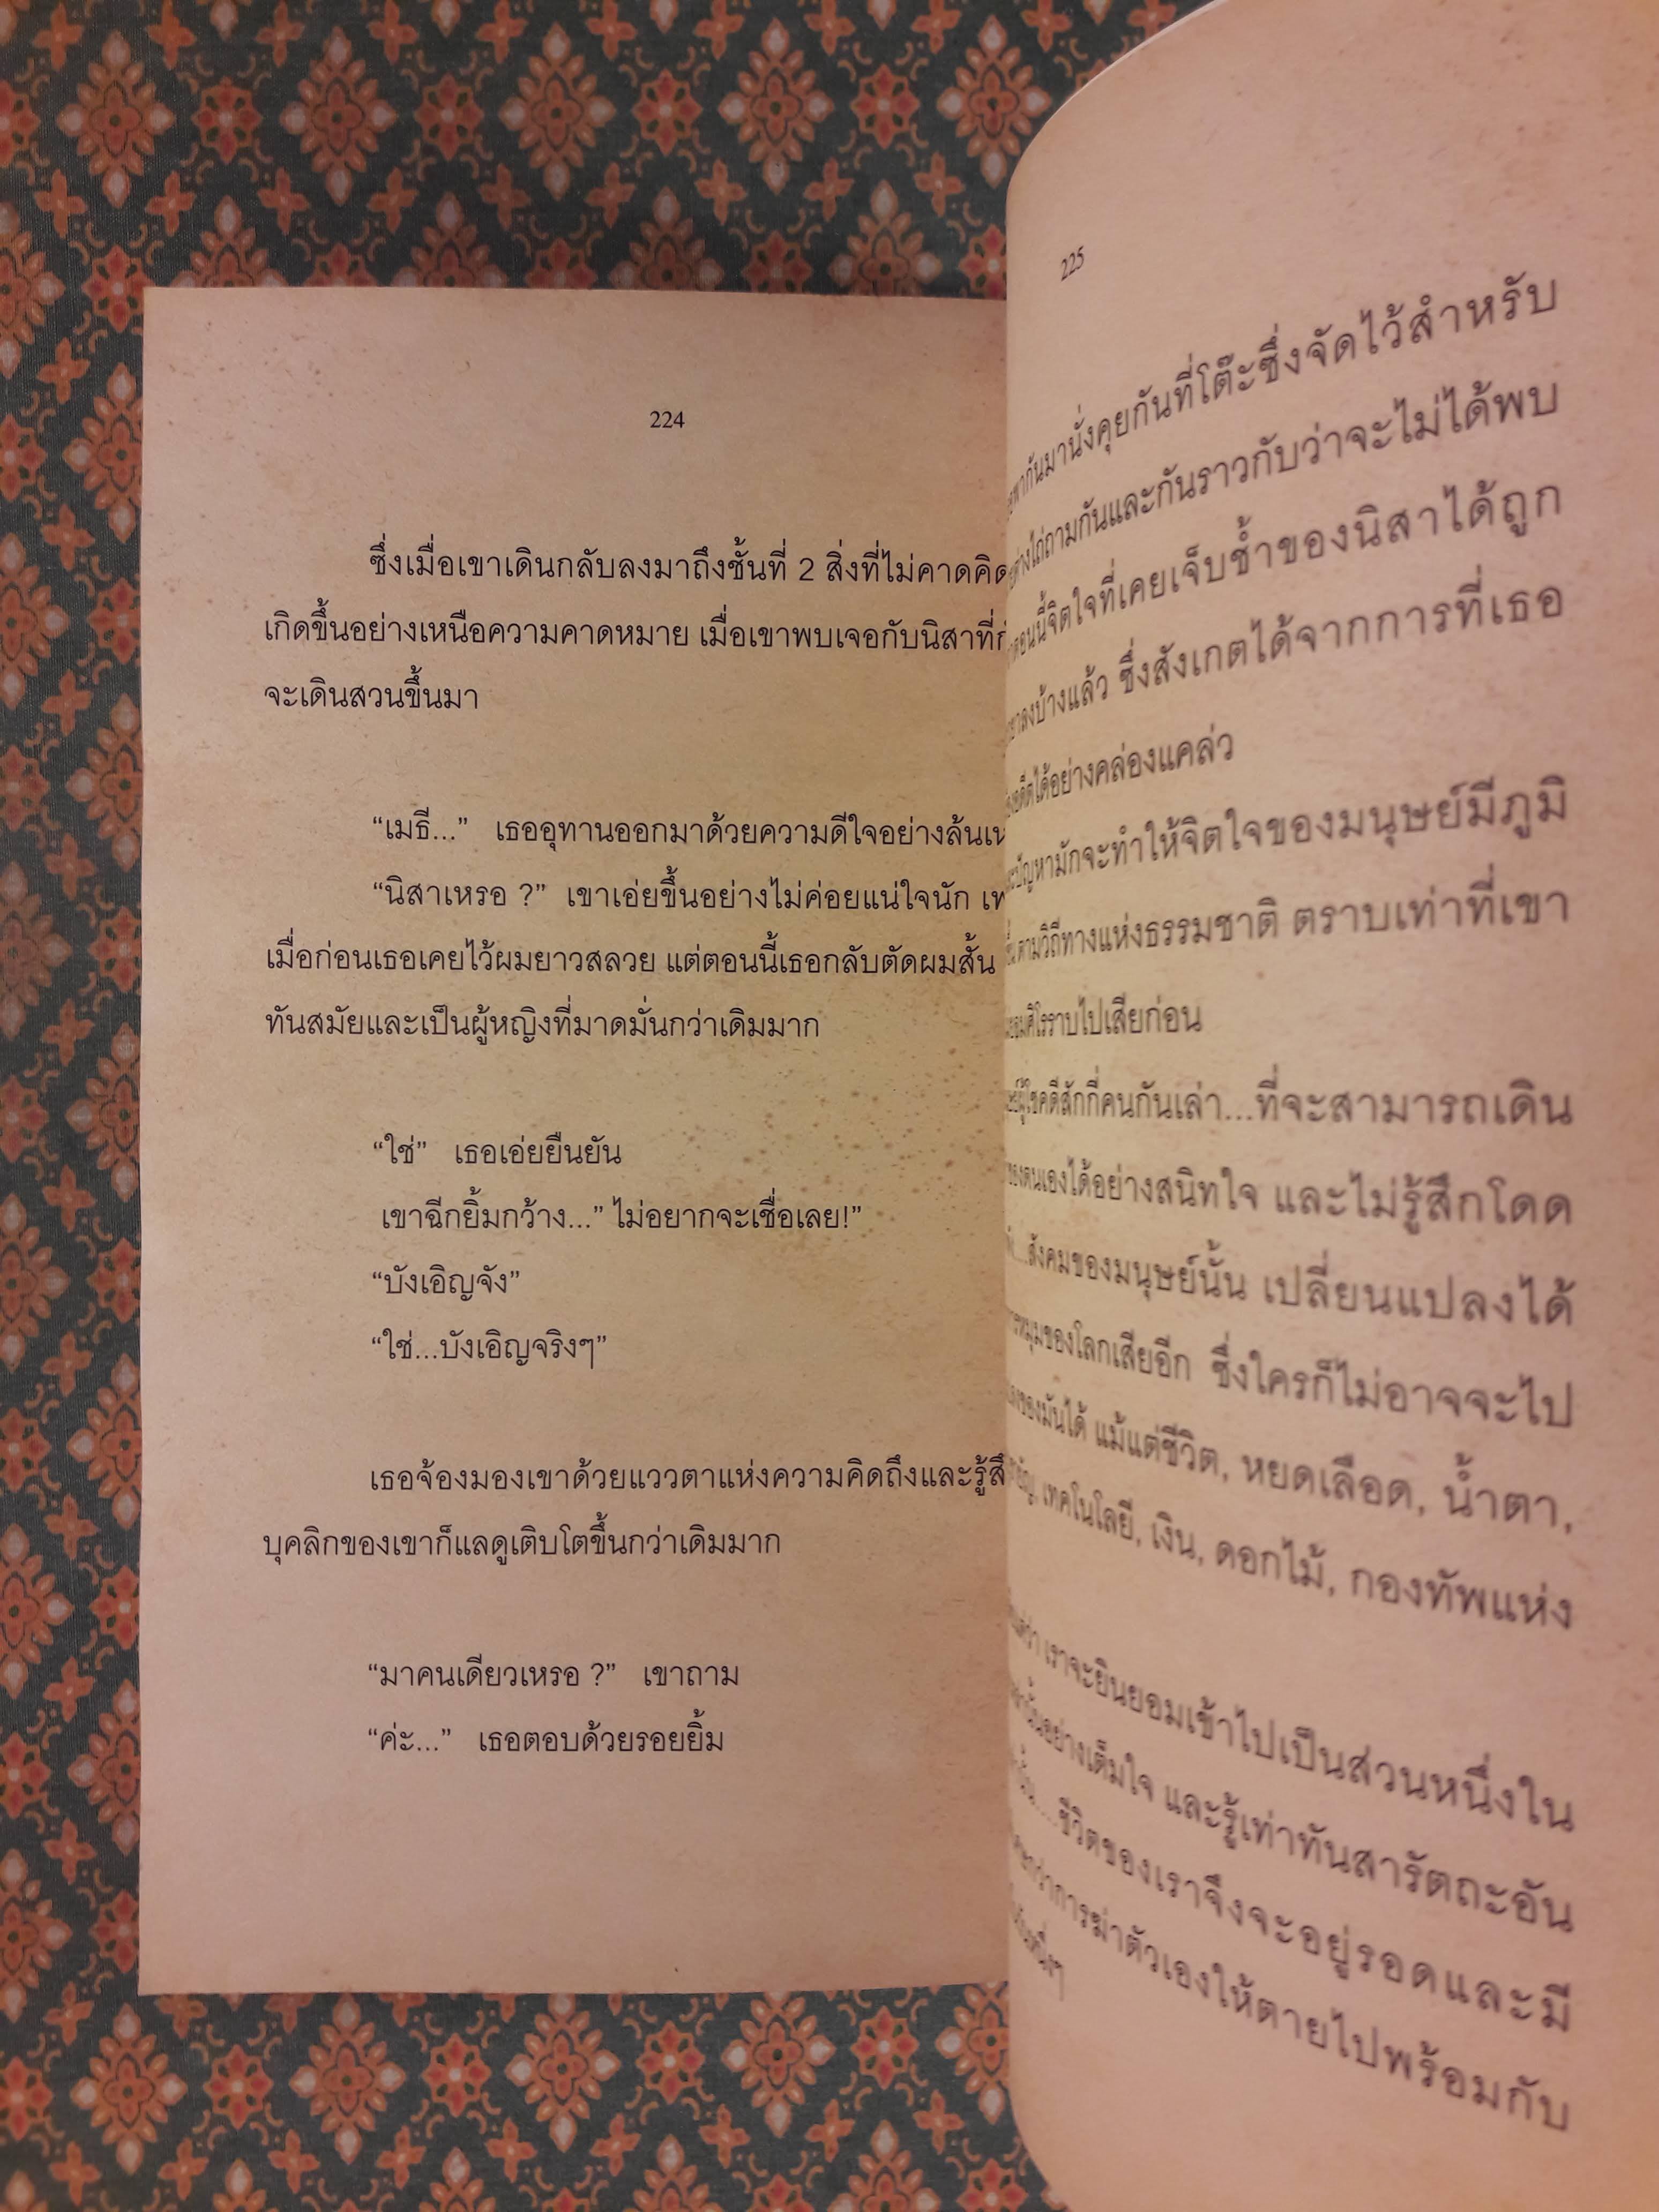 224
ซึ่งเมื่อเขาเดินกลับลงมาถึงชั้นที่ 2 สิ่งที่ไม่คาดคิด
เกิดขึ้นอย่างเหนือความคาดหมาย เมื่อเขาพบเจอกับนิสาที่
จะเดินสวนขึ้นมา
“เมธี...” เธออุทานออกมาด้วยความดีใจอย่างล้น
“นิสาเหรอ ?” เขาเอ่ยขึ้นอย่างไม่ค่อยแน่ใจนัก
เมื่อก่อนเธอเคยไว้ผมยาวสลวย แต่ตอนนี้เธอกลับตัดผมสั้น
ทันสมัยและเป็นผู้หญิงที่มาดมั่นกว่าเดิมมาก
“ใช่” เธอเอ่ยยืนยัน
เขาฉีกยิ้มกว้าง...” ไม่อยากจะเชื่อเลย!”
“บังเอิญจัง”
“ใช่...บังเอิญจริงๆ”
เธอจ้องมองเขาด้วยแววตาแห่งความคิดถึงและ
บุคลิกของเขาก็แลดูเติบโตขึ้นกว่าเดิมมาก
“มาคนเดียวเหรอ ?” เขาถาม
“ค่ะ...” เธอตอบด้วยรอยยิ้ม
225
พากันมานั่งคุยกันที่โต๊ะซึ่งจัดไว้สำหรับ
ถามกันและกันราวกับว่าจะไม่ได้พบ
จิตใจที่เคยเจ็บช้ำของนิสาได้ถูก
ลงบ้างแล้ว ซึ่งสังเกตได้จากการที่เธอ
ได้อย่างคล่องแคล่ว
ปัญหามักจะทำให้จิตใจของมนุษย์มีภูมิ
ตามวิถีทางแห่งธรรมชาติ ตราบเท่าที่เขา
ไปเสียก่อน
ผู้โชคดีสักกี่คนกันเล่า...ที่จะสามารถเดิน
ของตนเองได้อย่างสนิทใจ และไม่รู้สึกโดด
สังคมของมนุษย์นั้น เปลี่ยนแปลงได้
หมุนของโลกเสียอีก ซึ่งใครก็ไม่อาจจะไป
ของมันได้ แม้แต่ชีวิต, หยดเลือด, น้ำตา,
เทคโนโลยี, เงิน, ดอกไม้, กองทัพแห่ง
เราจะยินยอมเข้าไปเป็นส่วนหนึ่งใน
อย่างเต็มใจ และรู้เท่าทันสารัตถะอัน
ชีวิตของเราจึงจะอยู่รอดและมี
กว่าการฆ่าตัวเองให้ตายไปพร้อมกับ